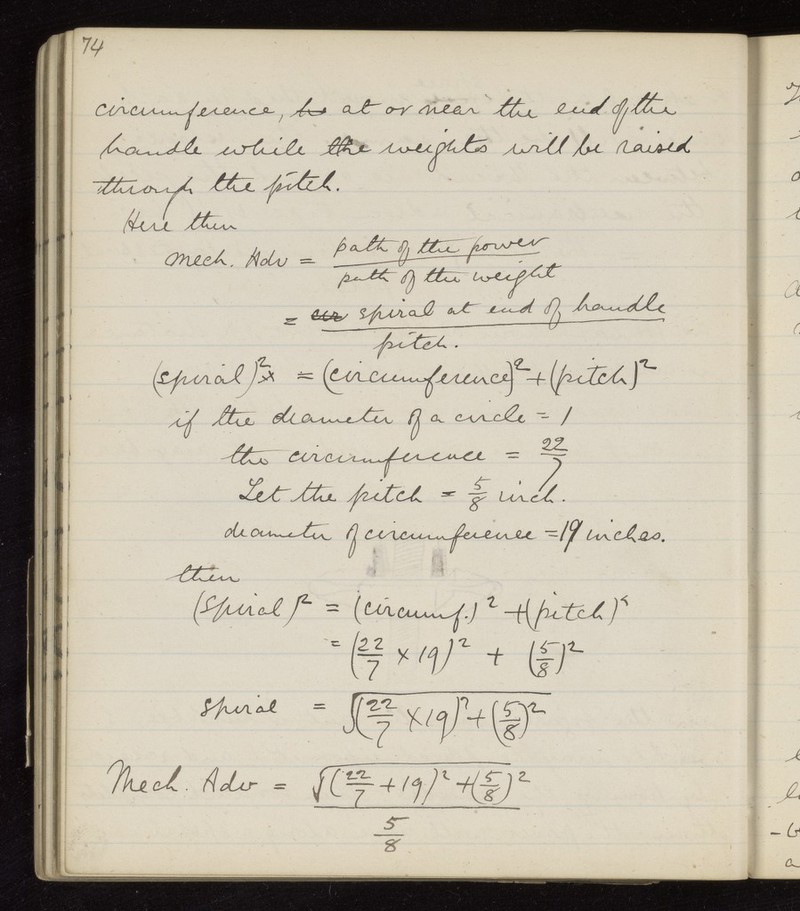 74
circumference, at or near the end of the
handle while the weights will be raised
through the pitch.
Here then
Mech. Adv = path of the power
path of the weight
= spiral at end of handle
pitch.
(spiral)² = (circumference)² + (pitch)²
if the diameter of a circle = 1
the circumference = 22/7
Let the pitch = 5/8 inch.
diameter of circumference = 19 inches.
then
(Spiral)² = (circumf.)² + (pitch)²
= (22/7 × 19)² + (5/8)²
Spiral = √((22/7 × 19)² + (5/8)²)
Mech. Adv = √((22/7 + 19)² + (5/8)²)
5/8